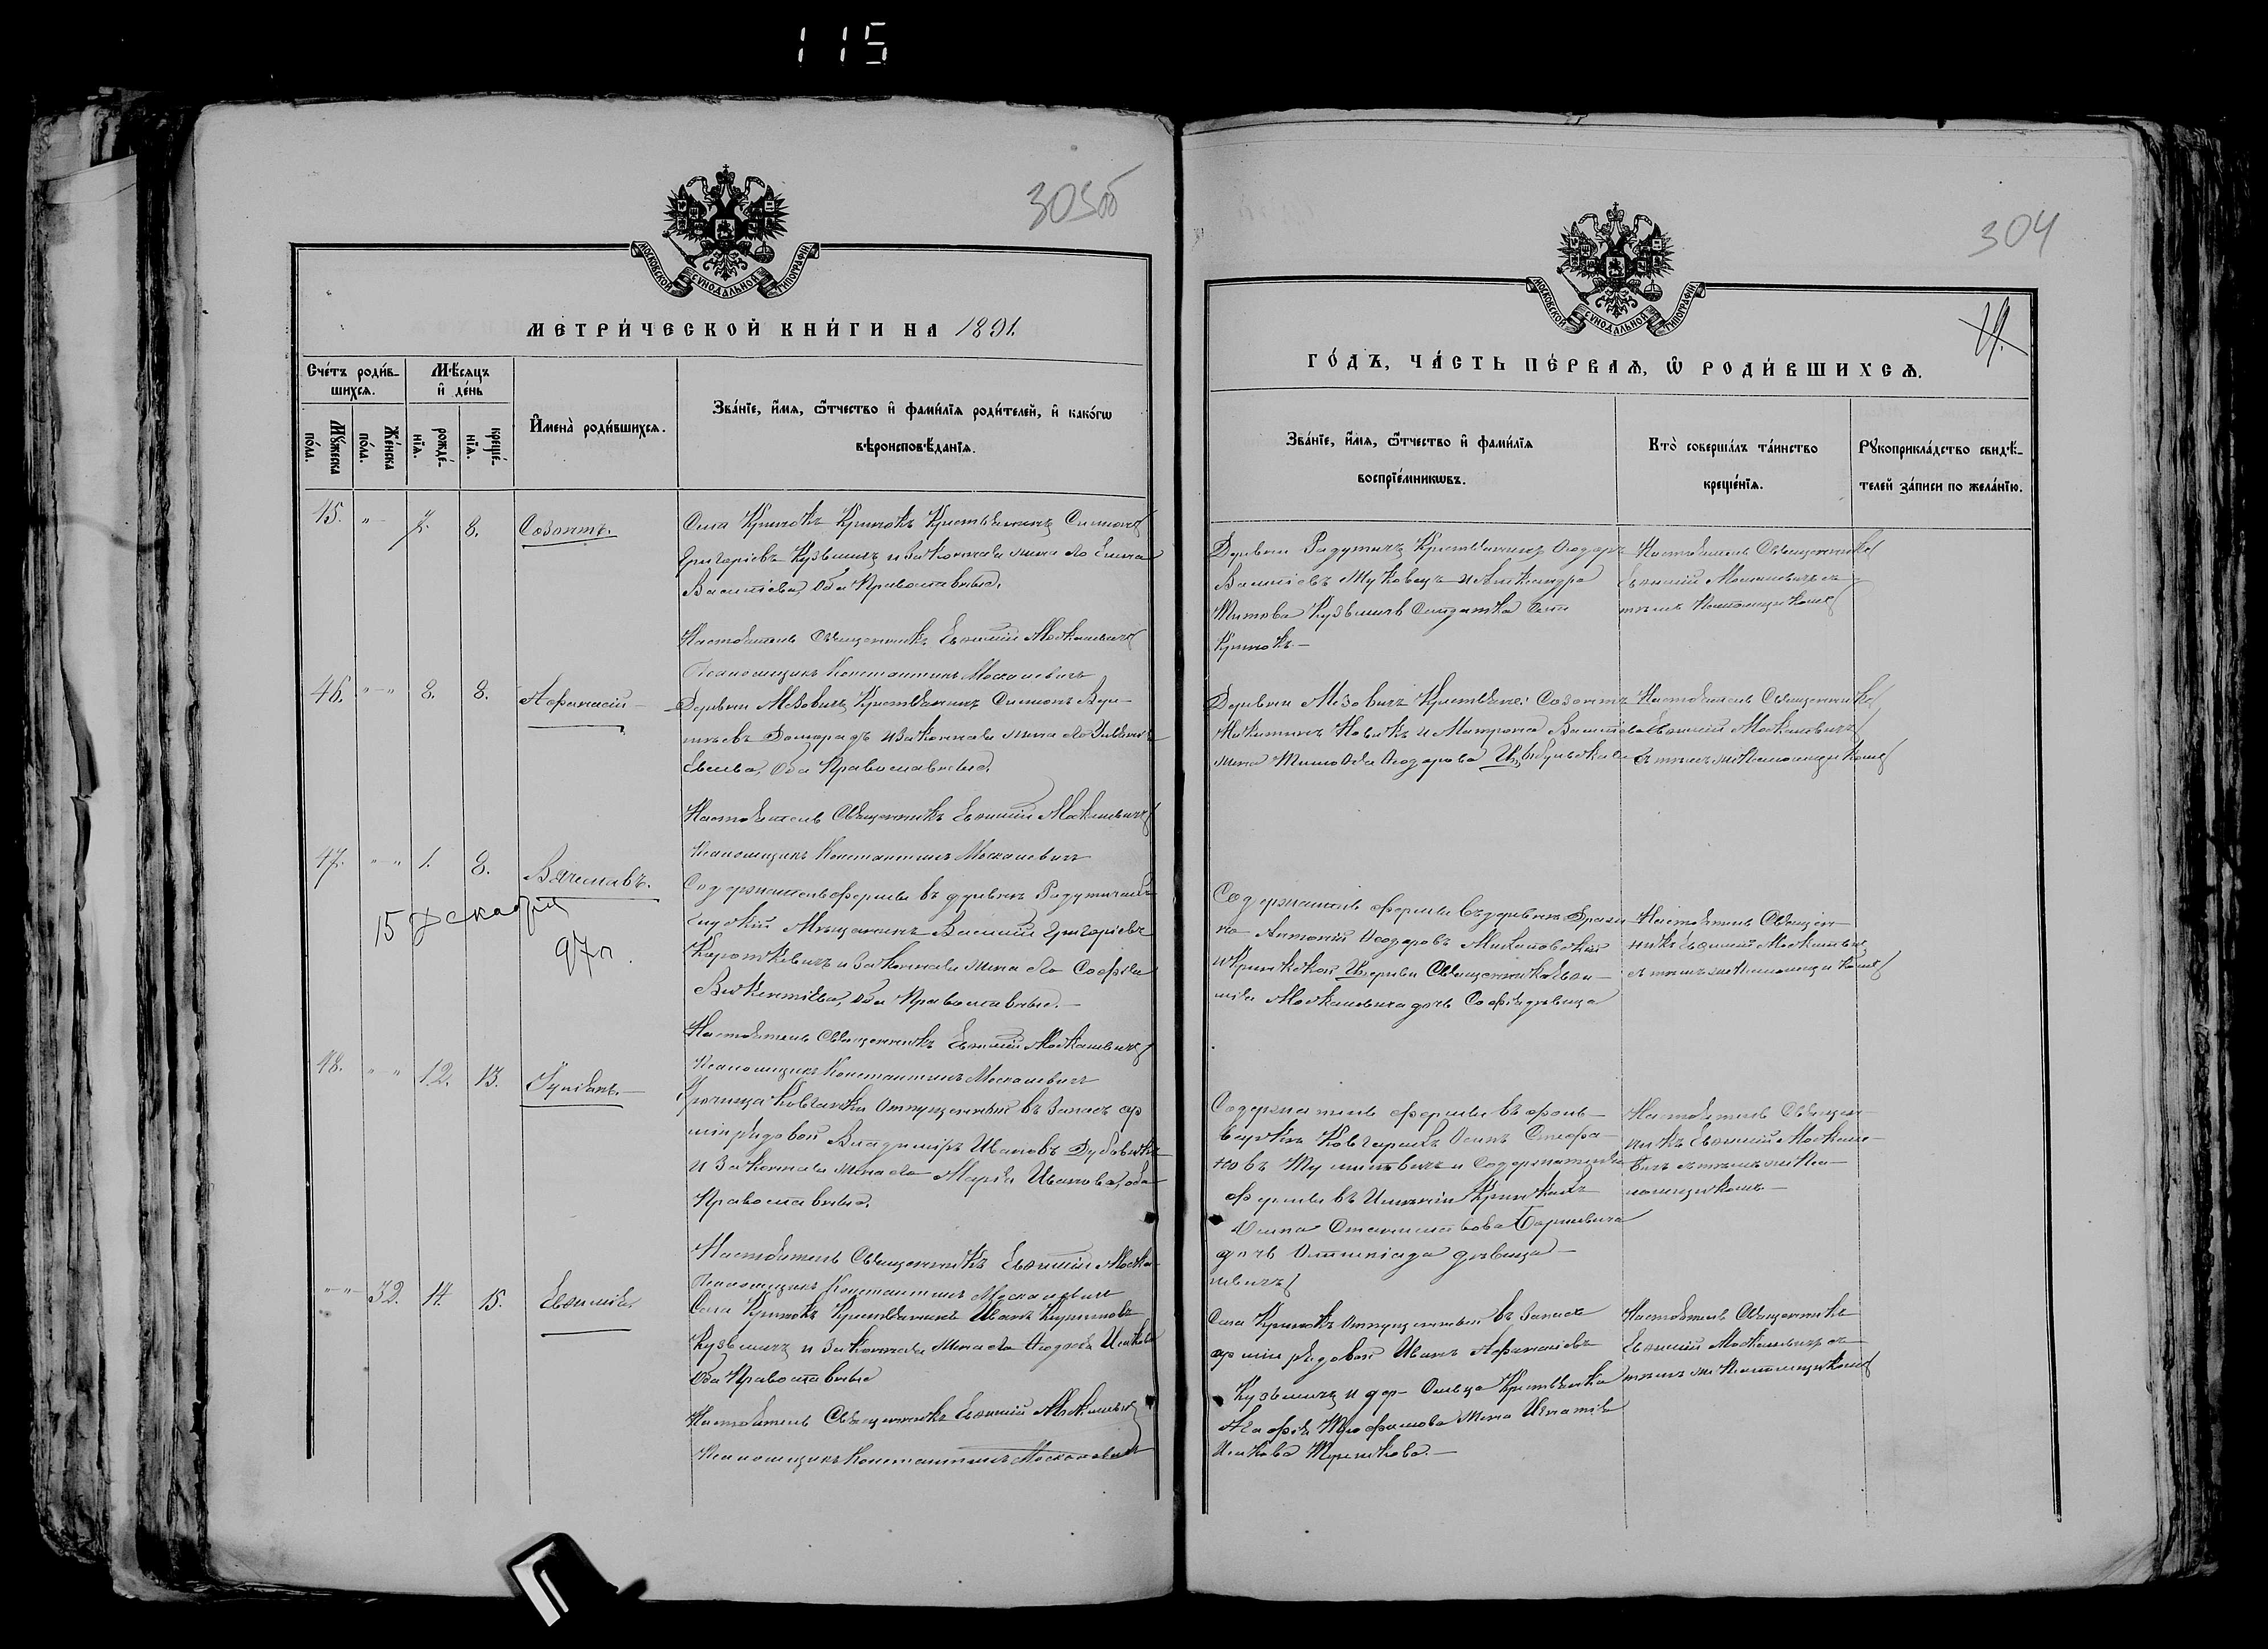 115
303об
МОСКОВСКОЙ СѴНОДАЛЬНОЙ ТИПОГРАФІИ
МЕТРИ́ЧЕСКОЙ КНИ́ГИ НА 1891.
Сче́тъ роди́в-
шихсѧ.
Мѣ́сѧцъ
и҆ де́нь
Мꙋ́жеска
по́ла.
Же́нска
по́ла.
рожде́-
нїѧ.
креще́-
нїѧ.
И҆мена̀ роди́вшихсѧ.
Зва́нїе, и҆́мѧ, ѻ҆́тчество и҆ фами́лїѧ роди́телей, и҆ како́гѡ
вѣроисповѣ́данїѧ.
45. " 7. 8. Созонтъ.
Села Кривокъ Крестьянинъ Симеонъ
Григоріевъ Кузьмичъ и законная жена его Елена
Васильева, оба Православные.
Настоятель Священникъ Евѳимій Москалевичъ
Псаломщикъ Константинъ Москалевичъ
46. " " 8. 8. Аѳанасій
Деревни Мезовичъ Крестьянинъ Симеонъ
Доморадъ и законная жена его
Евсева, оба Православные.
Настоятель Священникъ Евѳимій Москалевичъ
Псаломщикъ Константинъ Москалевичъ
47. " " 1. 8. Вячеславъ.
15 декабря
97 г.
Содержатель фермы въ деревнѣ Радутичахъ
Слуцкій Мѣщанинъ Василій Григоріевъ
Кароткевичъ и законная жена его Софія
Викентіева, оба Православные.
Настоятель Священникъ Евѳимій Москалевичъ
Псаломщикъ Константинъ Москалевичъ
48. " " 12. 13. Іуліанъ.
Урочища отпущенный въ запасъ ар
міи рядовой Владиміръ Ивановъ Дубовикъ
и законная жена его Марія Иванова, оба
Православные.
Настоятель Священникъ Евѳимій Моска-
левичъ
Псаломщикъ Константинъ Москалевичъ
" " 32. 14. 15. Евѳимія
Села Кривокъ Крестьянинъ Иванъ
Кузьмичъ и законная жена его Ѳеодосія
Оба Православные
Настоятель Священникъ Евѳимій Москалевичъ
Псаломщикъ Константинъ Москалевичъ
304
МОСКОВСКОЙ СѴНОДАЛЬНОЙ ТИПОГРАФІИ
ГО́ДЪ, ЧА́СТЬ ПЕ́РВАѦ, Ѡ҆ РОДИ́ВШИХСѦ.
Зва́нїе, и҆́мѧ, ѻ҆́тчество и҆ фами́лїѧ
воспрїе́мникѡвъ.
Кто̀ соверша́лъ та́инство
креще́нїѧ.
Рꙋкоприкла́дство свидѣ́-
телей за́писи по жела́нїю.
Деревни Радутичъ Крестьянинъ Ѳеодоръ
Васильевъ Жуковецъ и Александра
Титова Кузьмичъ Солдатка села
Кривокъ.
Настоятель Священникъ
Евѳимій Москалевичъ съ
тѣмъ Псаломщикомъ
Деревни Мезовичъ Крестьяне: Созонтъ
Никитинъ Новикъ и Матрона Васильева
жена Тимоѳея Ѳеодорова
Настоятель Священникъ
Евѳимій Москалевичъ
съ тѣмъ же Псаломщикомъ
Содержатель фермы въ деревнѣ
Антоній Ѳеодоровъ
и Кривокской Церкви Священника Евѳи-
мія Москалевича дочь Софія дѣвица
Настоятель Священ-
никъ Евѳимій Москалевичъ
съ тѣмъ же Псаломщикомъ
Содержатель фермы въ фоль-
варкѣ Осипъ Стефа-
новъ и Содержателя
фермы въ имѣніи Кривкахъ
Осипа Станиславова
дочь дѣвица
Настоятель Священ-
никъ Евѳимій Москале-
вичъ съ тѣмъ же Пса-
ломщикомъ
Села Кривокъ отпущенный въ запасъ
арміи рядовой Иванъ Аѳанасіевъ
Кузьмичъ и дер. Крестьянка
Агафія Трофимова жена Игнатія
Настоятель Священникъ
Евѳимій Москалевичъ съ
тѣмъ же Псаломщикомъ